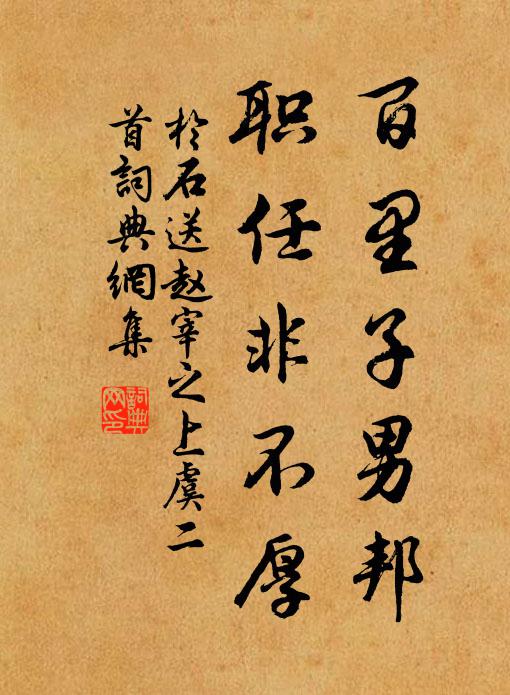 百里子男邦
职任非不厚
於石送赵宰之上虞二
首詞典網集
詞典网印